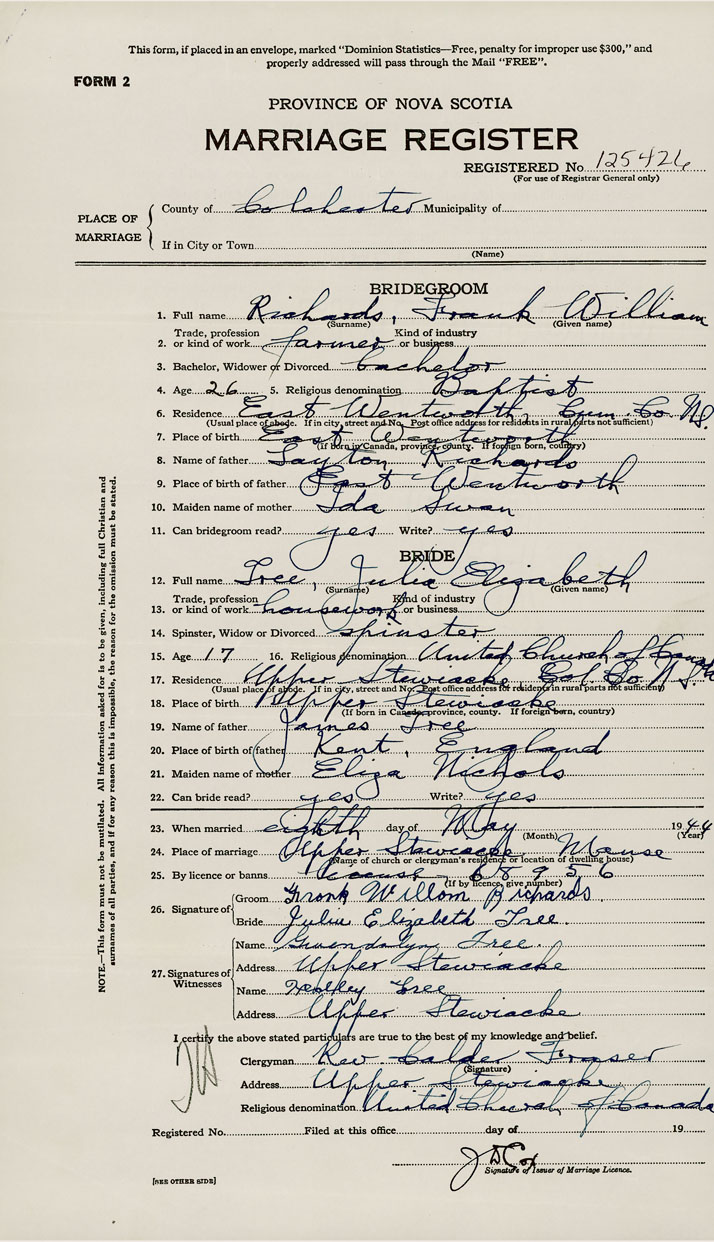 This form, if placed in an envelope, marked "Dominion Statistics—Free, penalty for improper use $300," and
properly addressed will pass through the Mail "FREE".
FORM 2
PROVINCE OF NOVA SCOTIA
MARRIAGE REGISTER
REGISTERED No. 125426
(For use of Registrar General only)
PLACE OF MARRIAGE
County of Colchester Municipality of
If in City or Town
(Name)
BRIDEGROOM
1. Full name Richards, Frank William
(Surname) (Given name)
Trade, profession Kind of industry
2. or kind of work farmer or business
3. Bachelor, Widower or Divorced bachelor
4. Age 26 5. Religious denomination Baptist
6. Residence East Wentworth, Cum. Co. N.S.
(Usual place of abode. If in city, street and No. Post office address for residents in rural parts not sufficient)
7. Place of birth East Wentworth
(If born in Canada, province, county. If foreign born, country)
8. Name of father Layton Richards
9. Place of birth of father East Wentworth
10. Maiden name of mother Ida Swan
11. Can bridegroom read? yes Write? yes
BRIDE
12. Full name Tree, Julia Elizabeth
(Surname) (Given name)
Trade, profession Kind of industry
13. or kind of work housework or business
14. Spinster, Widow or Divorced spinster
15. Age 17 16. Religious denomination United Church of Canada
17. Residence Upper Stewiacke, Col. Co. N.S.
(Usual place of abode. If in city, street and No. Post office address for residents in rural parts not sufficient)
18. Place of birth Upper Stewiacke
(If born in Canada, province, county. If foreign born, country)
19. Name of father James Tree
20. Place of birth of father Kent, England
21. Maiden name of mother Eliza Nichols
22. Can bride read? yes Write? yes
23. When married eighth day of May 1944
(Month) (Year)
24. Place of marriage Upper Stewiacke Manse
(Name of church or clergyman's residence or location of dwelling house)
25. By licence or banns license 68956
(If by licence, give number)
26. Signature of
Groom Frank Willom Richards.
Bride Julia Elizabeth Tree.
27. Signatures of Witnesses
Name Gwendolyn Tree.
Address Upper Stewiacke
Name Tree
Address Upper Stewiacke
I certify the above stated particulars are true to the best of my knowledge and belief.
Clergyman Rev Calder Fraser
(Signature)
Address Upper Stewiacke
Religious denomination United Church of Canada
Registered No. Filed at this office day of 19
J D Cox
Signature of Issuer of Marriage Licence.
[SEE OTHER SIDE]
NOTE.—This form must not be mutilated. All information asked for is to be given, including full Christian and
surnames of all parties, and if for any reason this is impossible, the reason for the omission must be stated.